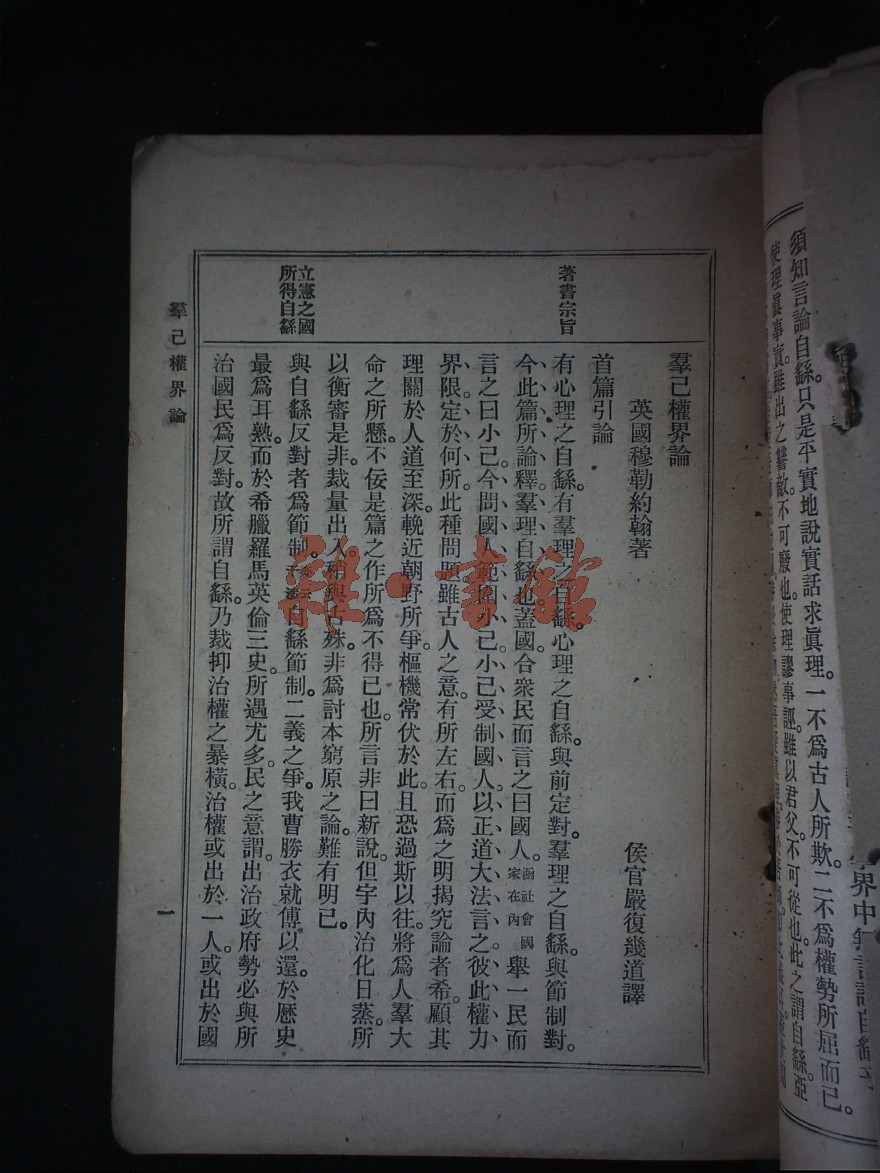 須知言論自繇。只是平實地說實話求眞理。一不爲古人所欺。二不爲權勢所屈而已。
使理眞事實。雖出之讐敵。不可廢也。使理謬事誣。雖以君父。不可從也。此之謂自繇。亞
著書宗旨
立憲之國
所得自繇
羣己權界論
英國穆勒約翰著
侯官嚴復幾道譯
首篇引論
有心理之自繇。有羣理之自繇。心理之自繇。與前定對。羣理之自繇。與節制對。
今此篇所論釋。羣理自繇也。蓋國、合衆民而言之曰國人。函社會國家在內舉一民而
言之曰小己。今問國人範圍小己。小己受制國人。以正道大法言之。彼此權力
界限。定於何所。此種問題。雖古人之意。有所左右。而爲之明揭究論者希。顧其
理關於人道至深。輓近朝野所爭。樞機常伏於此。且恐過斯以往。將爲人羣大
命之所懸。不佞是篇之作。所爲不得已也。所言非曰新說。但宇內治化日蒸。所
以衡審是非。裁量出入。稍與古殊。非爲討本窮原之論。難有明已。
與自繇反對者爲節制。自繇節制。二義之爭。我曹勝衣就傅以還。於歷史
最爲耳熟。而於希臘羅馬英倫三史。所遇尤多。民之意謂。出治政府勢必與所
治國民爲反對。故所謂自繇。乃裁抑治權之暴橫。治權或出於一人。或出於國
羣己權界論
一